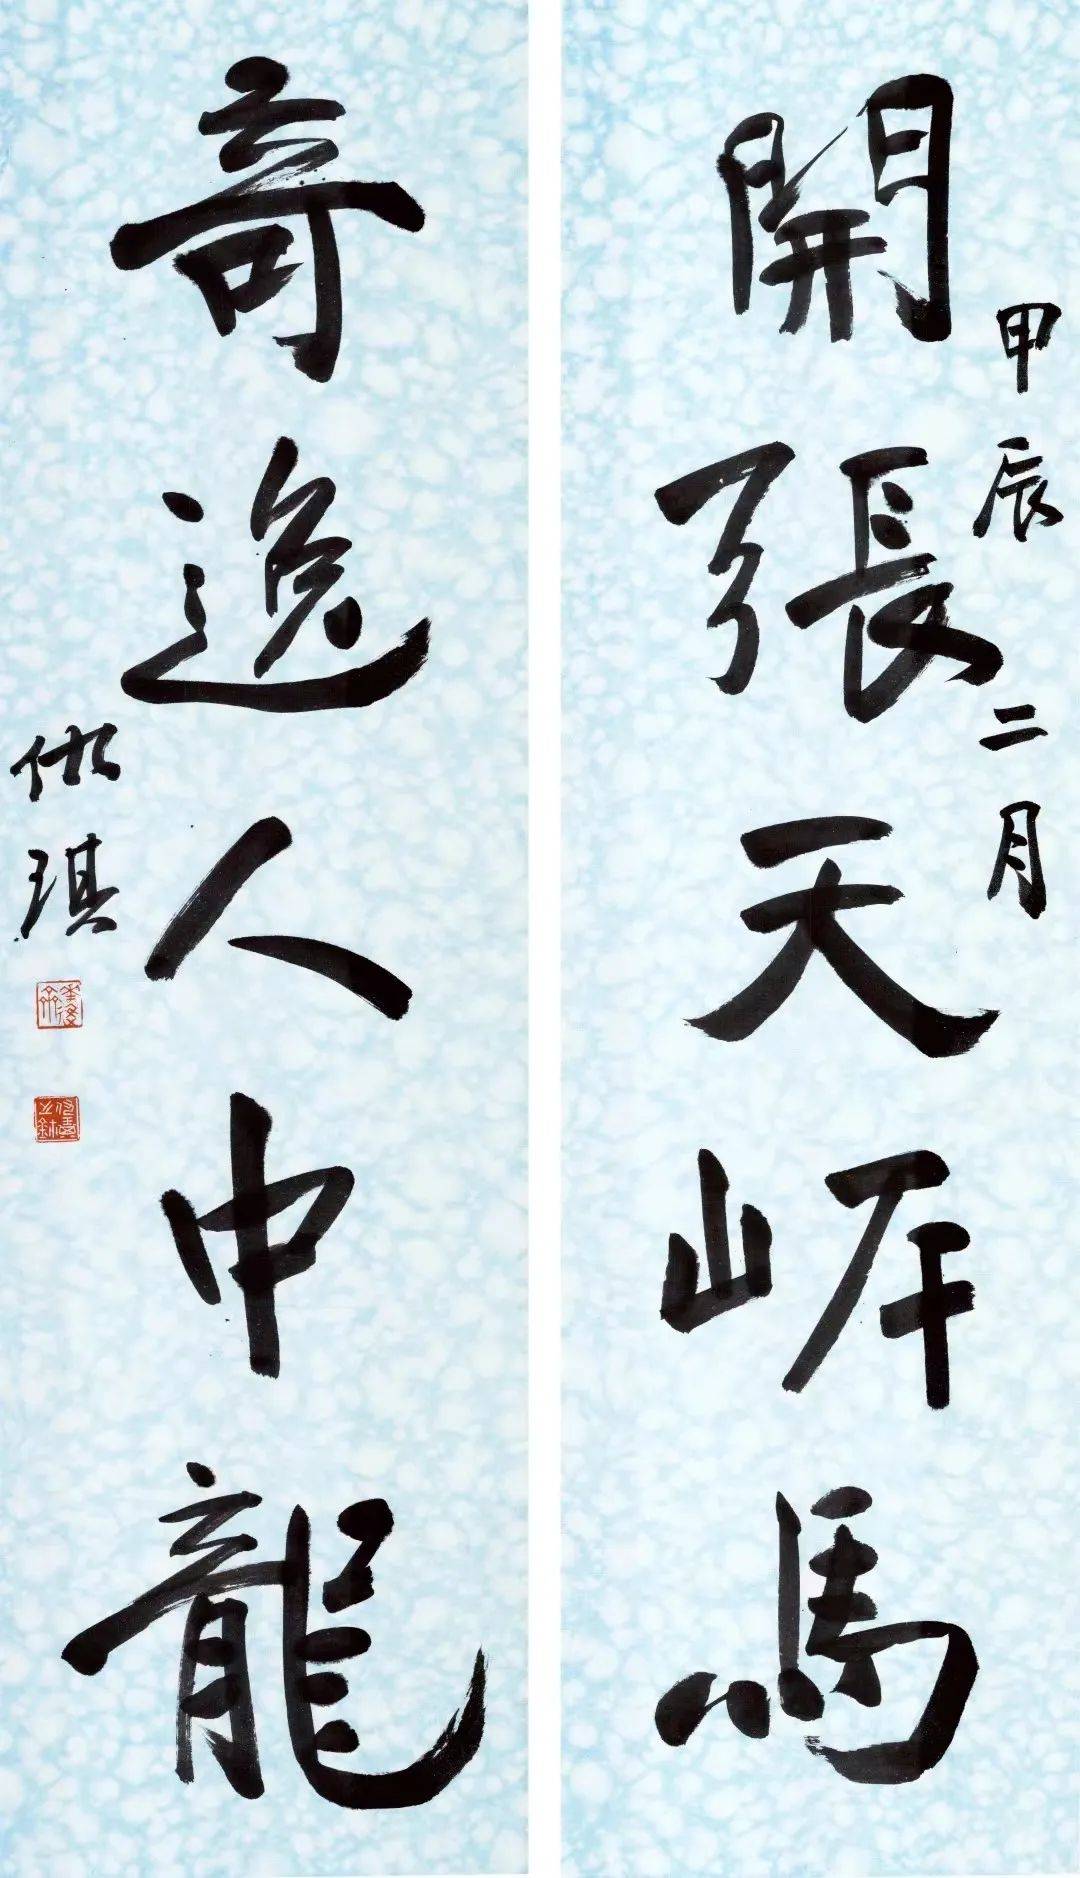 甲辰二月
開張天岸馬
奇逸人中龍
琪